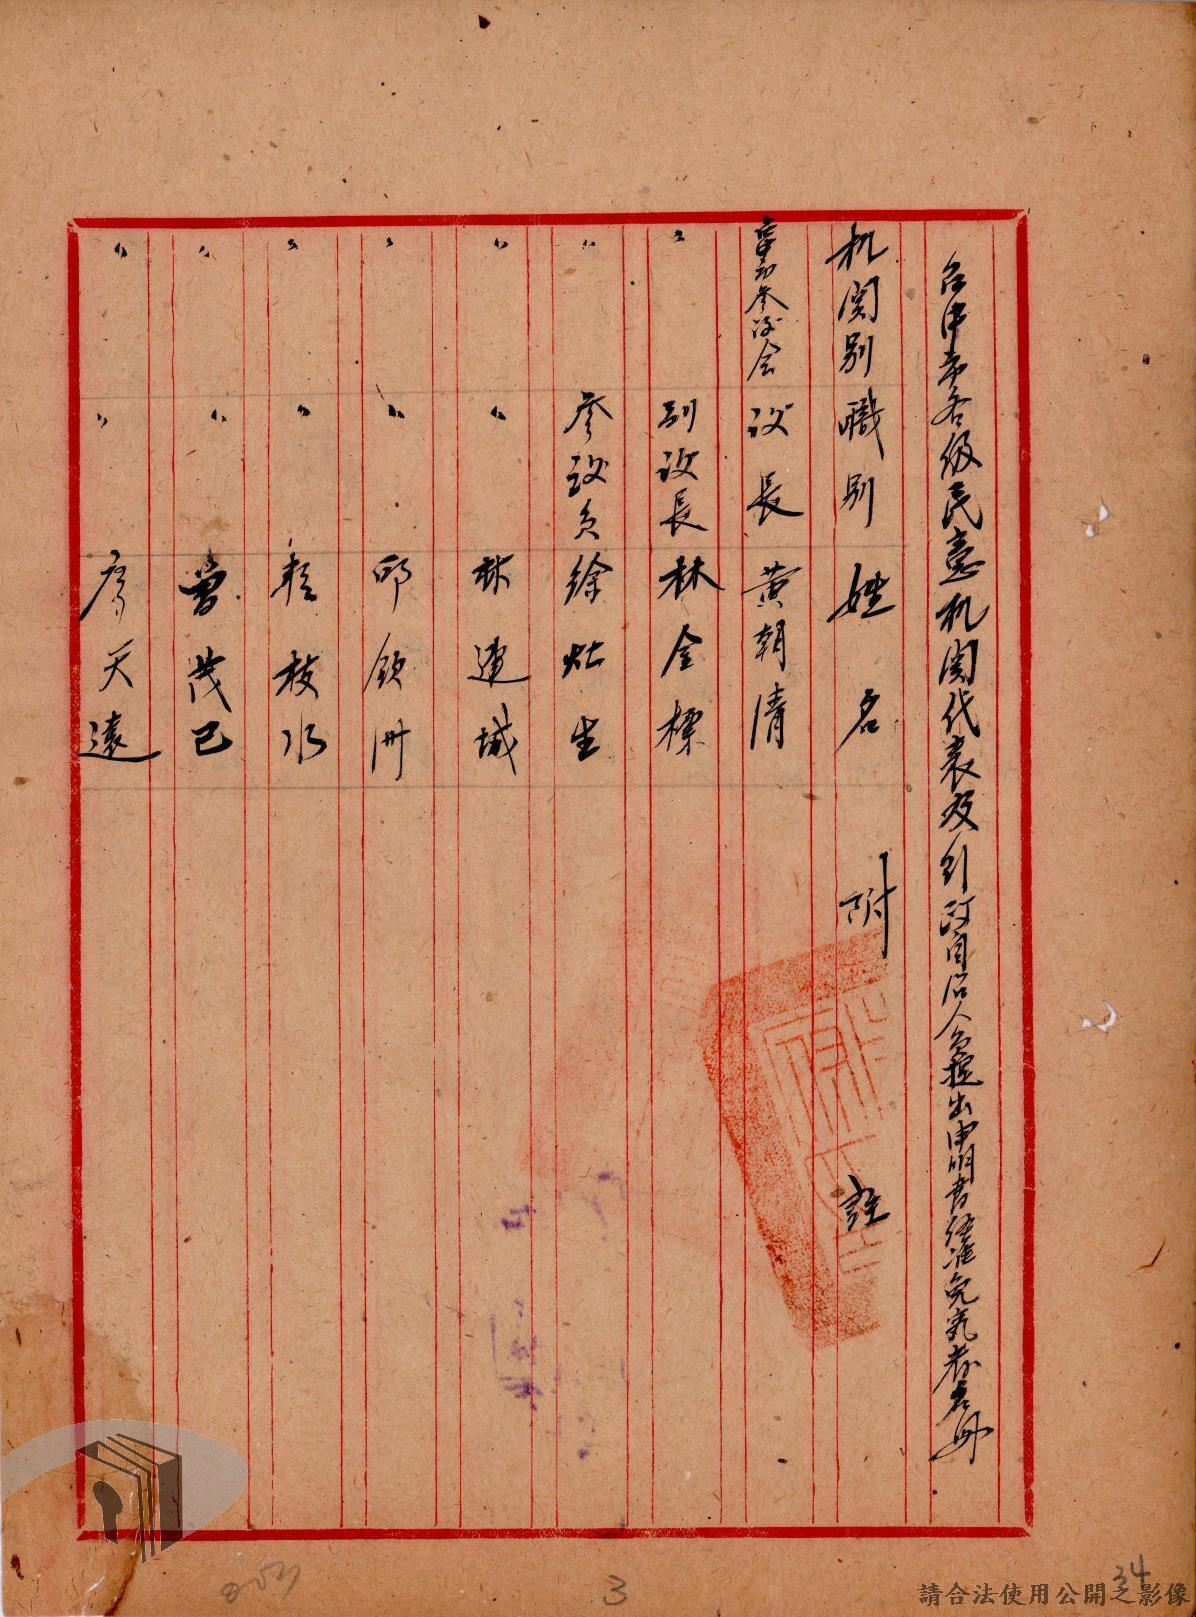 台中市各級民意机関代表及行政自治人員提出申明書経准免究者名冊
机関別 職別 姓名 附註
台中市参议会 议長 黄朝清
〃 副议長 林金標
〃 参议员 徐灶生
〃 〃 林連城
〃 〃 邱欽洲
〃 〃 頼枝水
〃 〃 曾茂己
〃 〃 廖天遠
3
34
請合法使用公開之影像